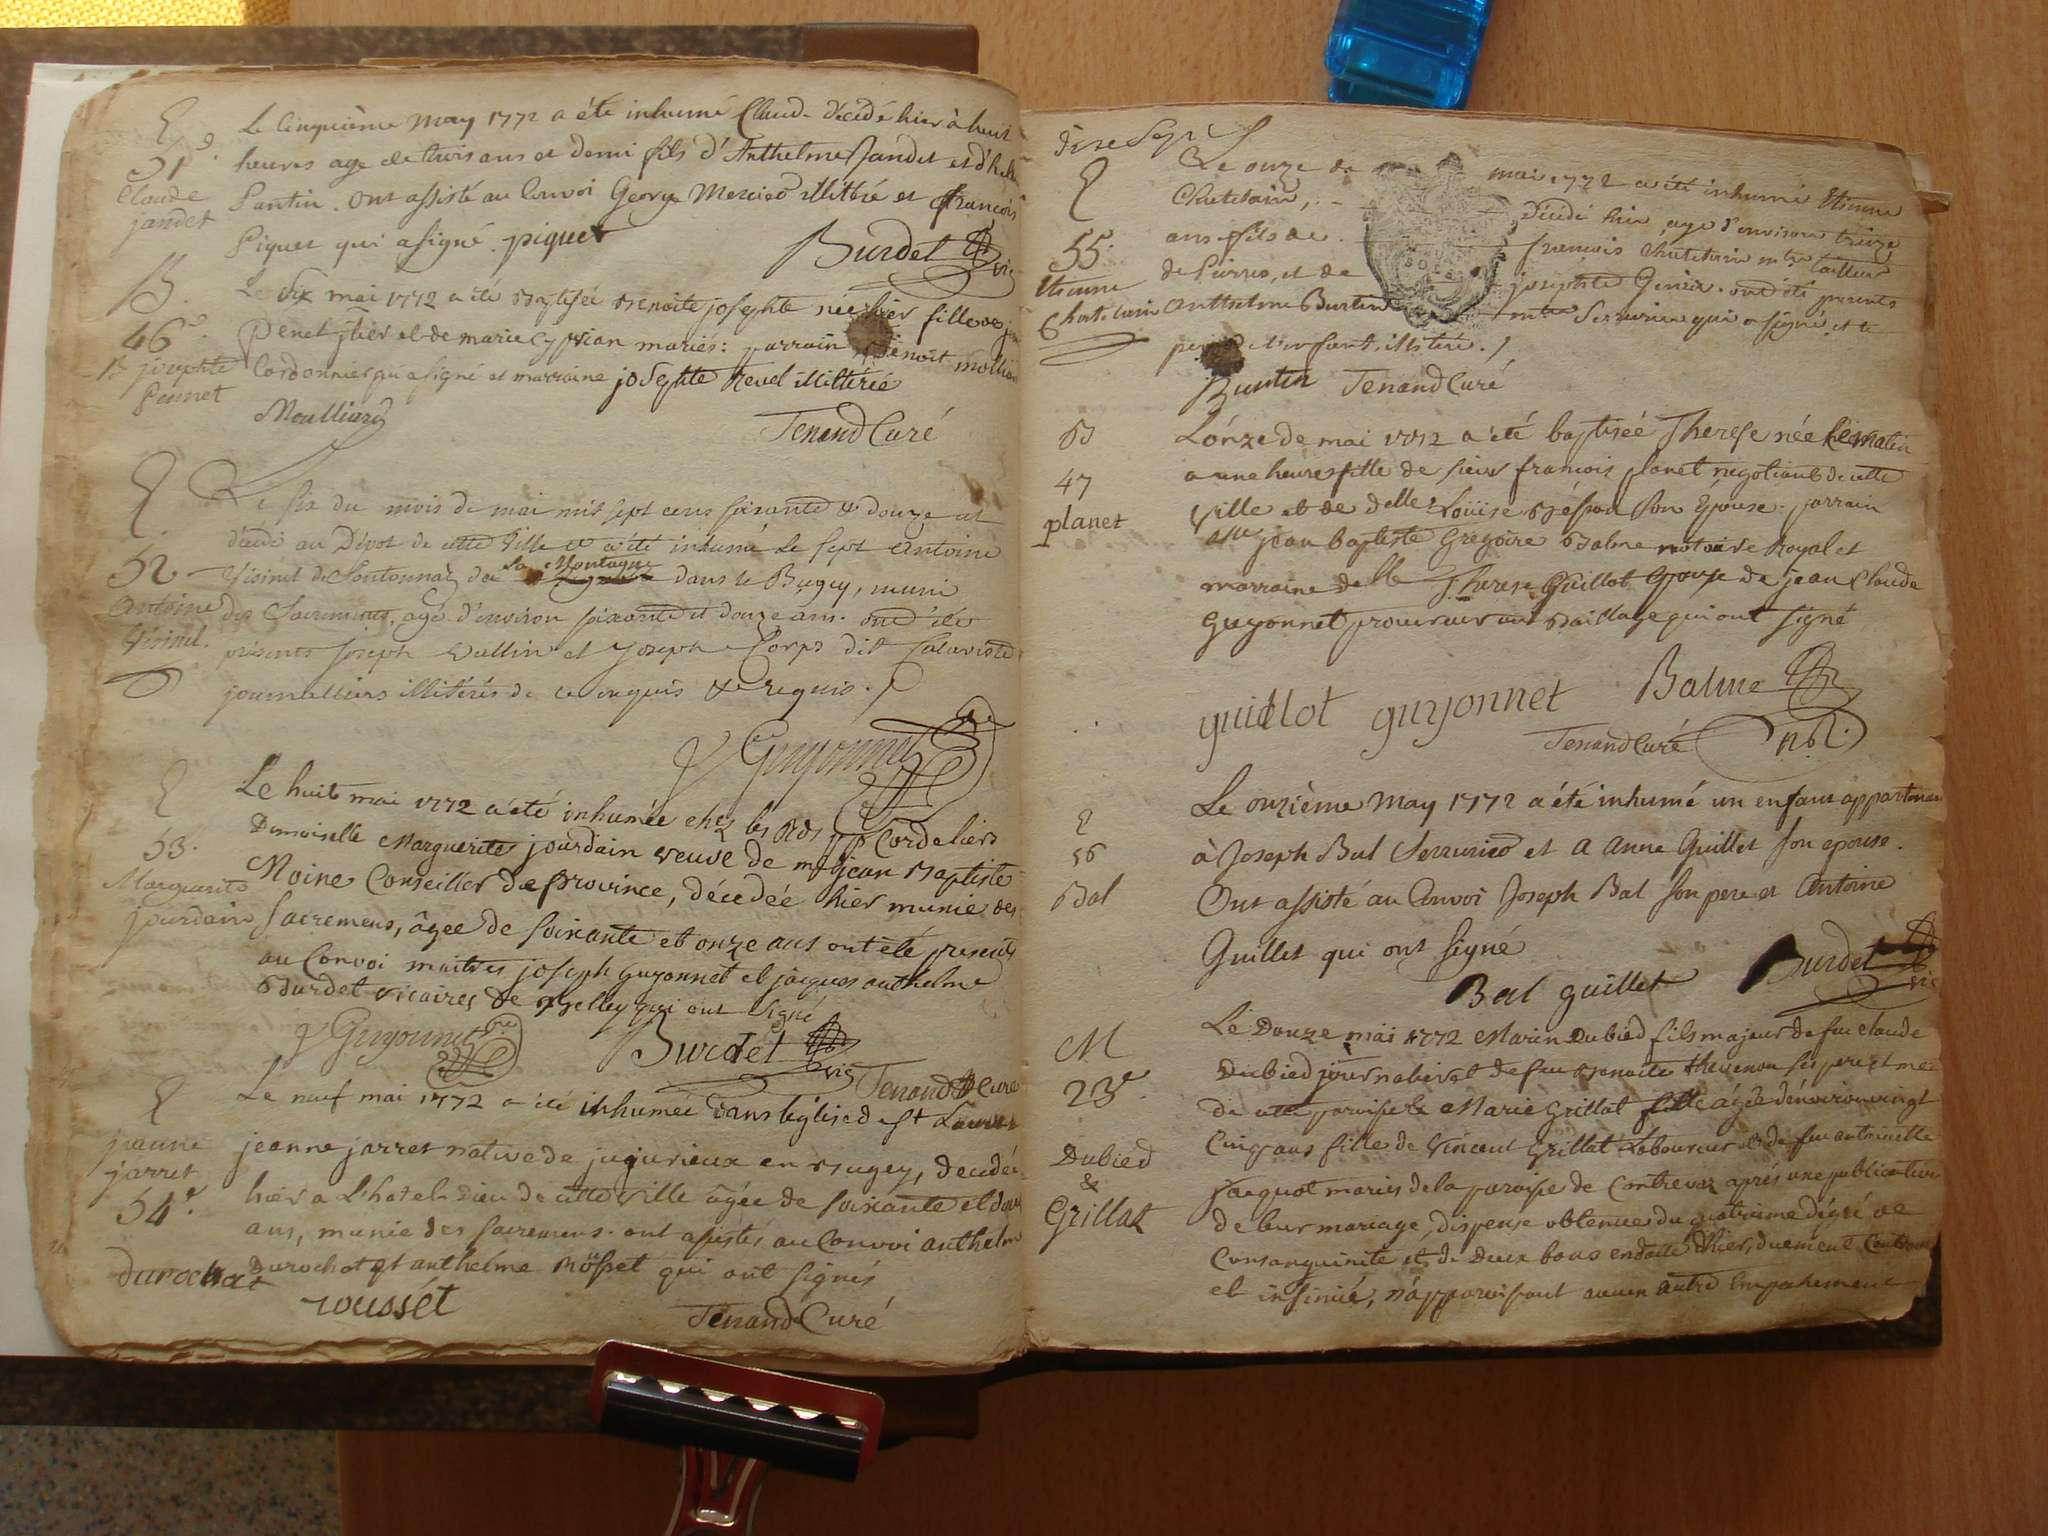 E
51e.
Claude
jandet
Le Cinquième May 1772 a été inhumé Claude décédé hier à huit
heures agé de trois ans et demi fils d'Anthelme Jandet et d'
Pantin. ont assisté au Convoi George Mercier illitéré et francois
Piquet qui a signé. piquet
Burdet vic
B.
46e.
Bte josephte
Pennet
Le Six mai 1772 a été Baptisée Benoite josephte née hier fille de
Penet et de marie cyprian mariés: parrain Benoit molliard
Cordonnier qui a signé et marraine josephte Revel illitérée
Moulliard
Tenand Curé
E
52
antoine
Visinet.
Le six du mois de mai mil sept cens soixante & douze est
décédé au Dépot de cette Ville et a été inhumé le sept antoine
Visinet de Sontonnaz de la Montagne dans le Bugey, muni
des Sacremens, agé d'environ soixante et douze ans. ont étés
présents joseph Vullin et joseph Corps dit
journalliers illitérés de ce enquis & requis.
Guyonnet
E
53.
Marguerite
jourdain
Le huit mai 1772 a été inhumée chez les RdS pp Cordeliers
Demoiselle Marguerite jourdain veuve de mr jean Baptiste
Moine Conseiller de province, décédée hier munie des
sacremens, âgée de soixante et onze ans ont été presents
au Convoi maitres joseph Guyonnet et jacques anthelme
Burdet vicaires de Belley qui ont signé
Guyonnet vre
Burdet vic
Tenand Curé
E
jeanne
jarret
54e.
Le neuf mai 1772 a été inhumée dans l'église de st Laurent
jeanne jarret native de jujurieux en Bugey, decedée
hier a L'hotel Dieu de cette ville âgée de soixante et douze
ans, munie des sacremens. ont assistés au Convoi anthelme
Durochat et anthelme Rousset qui ont signés
durochat
rousset
Tenand Curé
dixe Sept
E
55.
Etienne
Chatelain
Le onze de mai 1772 a été inhumé Etienne
Chatelain, décédé hier, agé d'environ treize
ans fils de francois Chatelain mtre tailleur
de Pierres, et de josephte Genin. ont été presents
Anthelme Buntin mtre Serrurier qui a signé et le
pere de l'enfant, illitéré.
Buntin Tenand Curé
B
47
planet
L'onze de mai 1772 a été baptisée Therese née hier matin
a une heure fille de sieur francois planet negotiant de cette
Ville et de delle Louise son Epouse. parrain
jean Baptiste Gregoire Balme notaire Royal et
marraine delle Therese Guillot Epouse de jean Claude
Guyonnet procureur au Bailliage qui ont signé
guillot guyonnet Balme
Tenand Curé
E
56
Bal
Le onzième May 1772 a été inhumé un enfant appartenan
à Joseph Bal Serrurier et a Anne Guillet son epouse.
Ont assisté au Convoi Joseph Bal son pere et Antoine
Guillet qui ont signé
Bal guillet Burdet vic
M
23e.
Dubied
&
Grillat
Le Douze mai 1772 Marin Dubied fils majeur de feu claude
Dubied journalier et de feu Benoite thevenon ses pere et mere
de cette paroisse & Marie Grillat fille âgée d'environ vingt
Cinq ans fille de Vincent Grillat Laboureur et de feu antoinette
jacquot mariés de la paroisse de Contrevoz aprés une publication
de leur mariage, dispense obtenue du quatrieme dégré de
Consanguinité et de deux bans en datte d'hier, duement Controlé
et insinué, n'apparoissant aucun autre Empechement